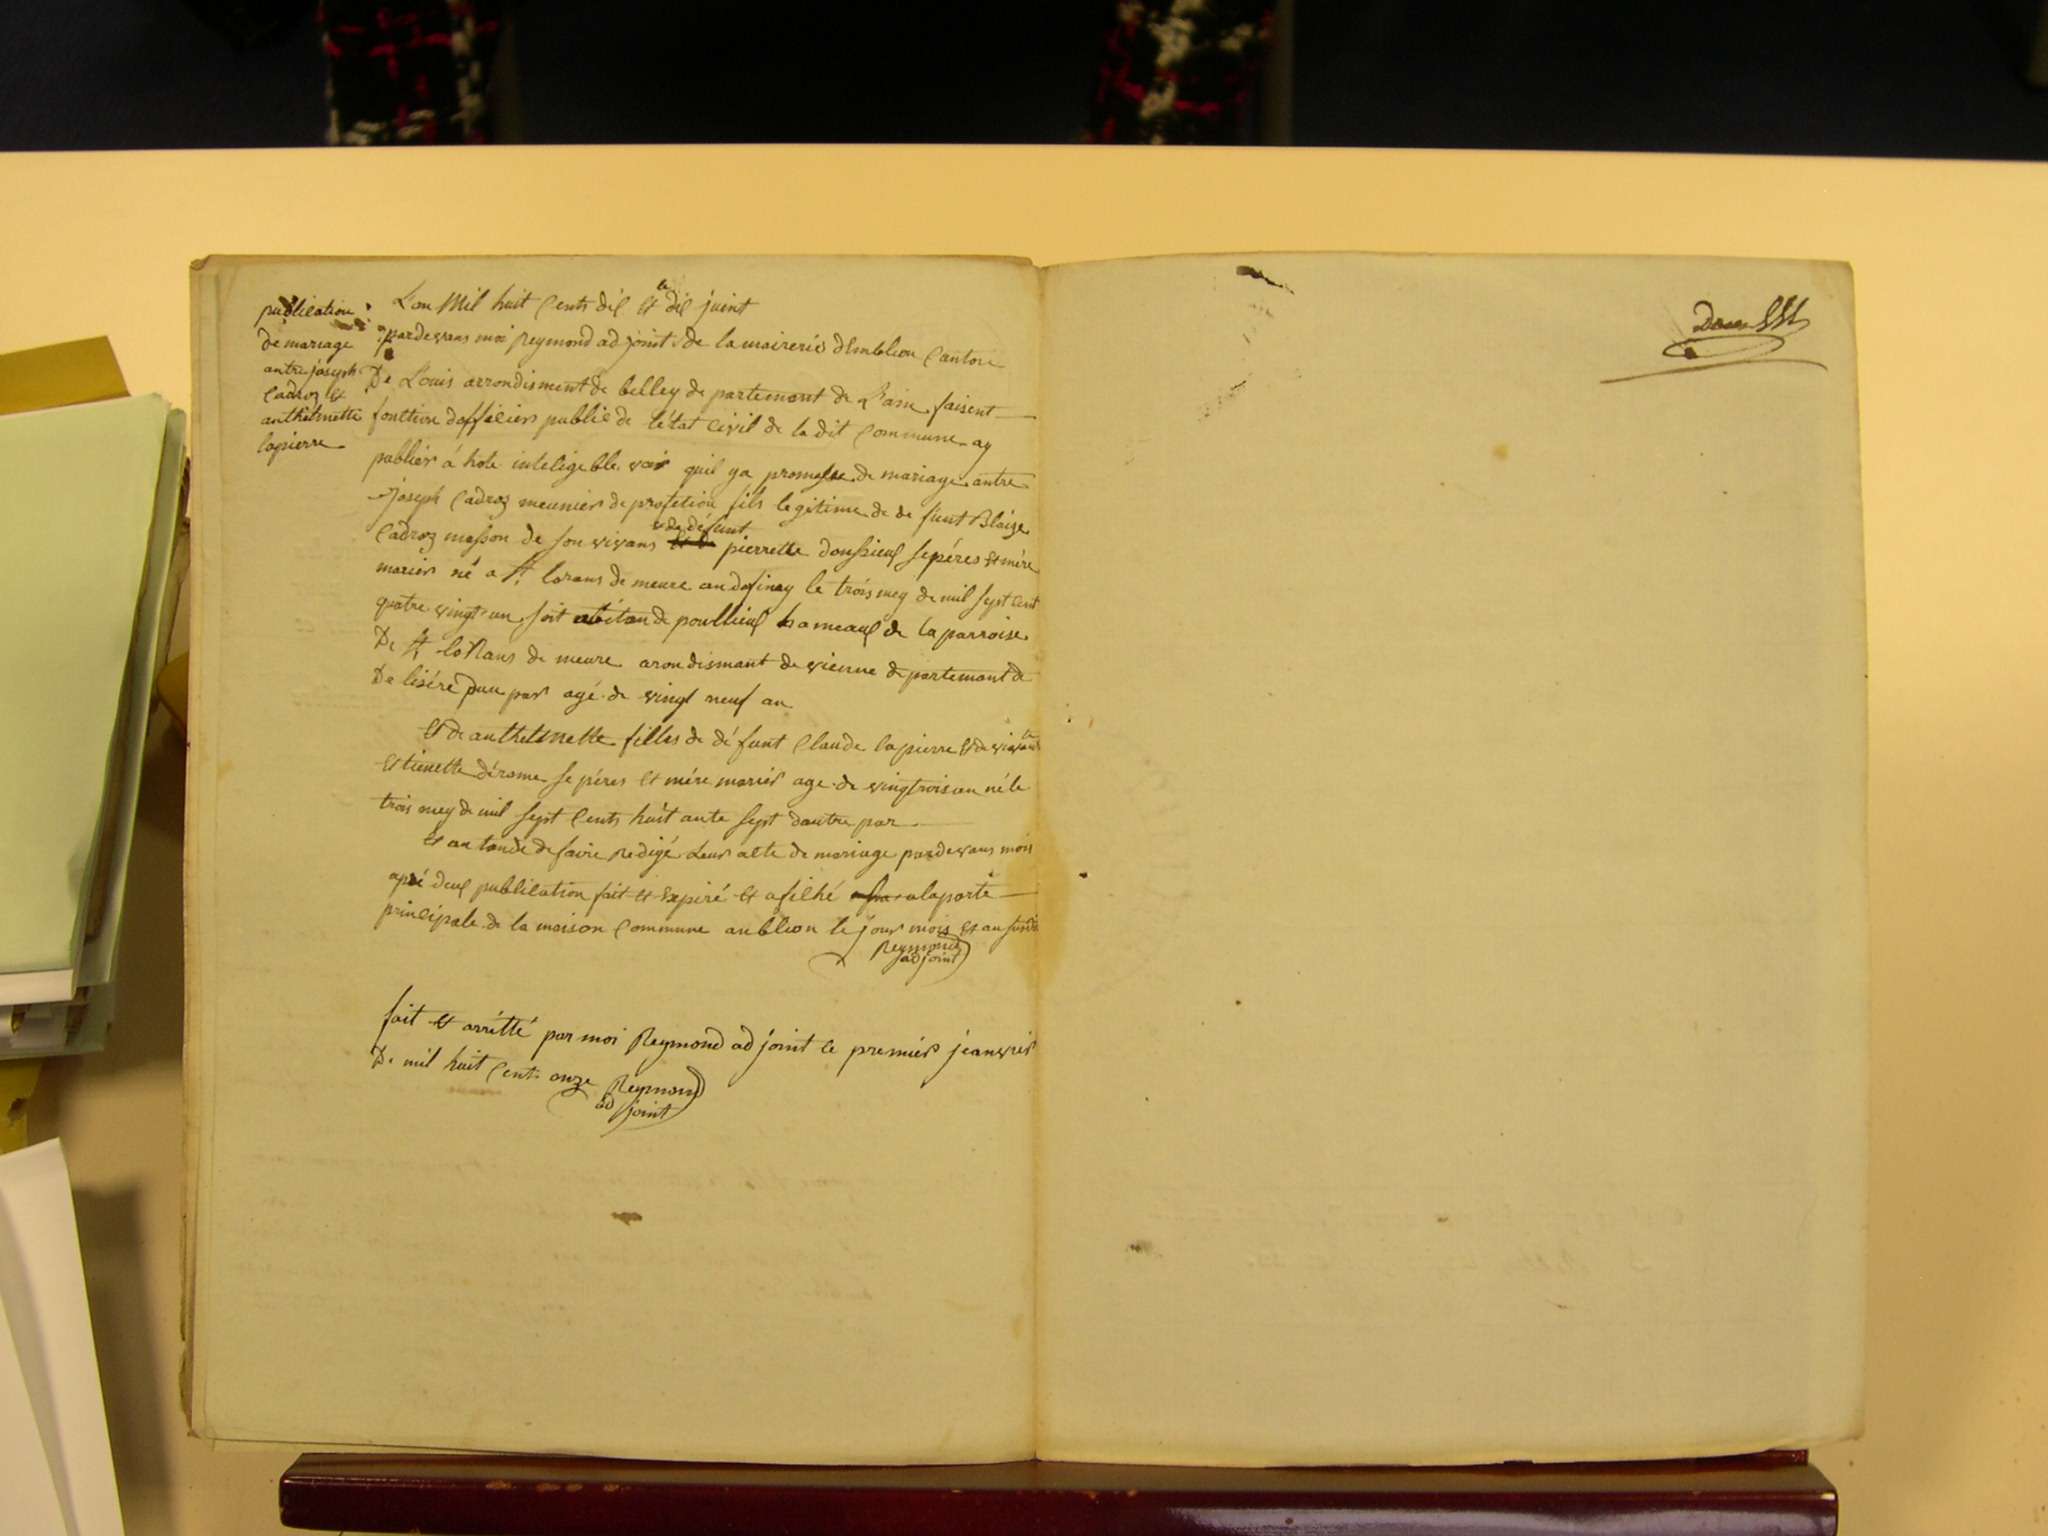 publication
de mariage
antre joseph
Cadroz et
anthelmette
lapierre
L'an Mil huit Cents dix et le dix juint
pardevans moi reymond adjoint de la mairerie d'Embleon Canton
De Louis arrondisment de belley departemant de L'ain faisent
fonction dofficier public de letat Civil de la dit Commune ay
publier á hote inteligeble voix quil ya promesse de mariage antre
joseph Cadroz meunier de profetion fils legitime de de funt Blaize
Cadroz masson de son vivans & de défunt pierrette doussieux se péres et mére
marier né a St lorans de meure an dofinay le trois mey de mil sept Cent
quatre vingt un soit abitan de poullieux hameaux de la parroise
De St lorans de meure arondismant de vienne departemant de
De lisére dune par agé de vingt neuf an
et de anthelmette filles de défunt Claude lapierre et de vivante
Etienette dérome se péres et mére marier age de vingtrois an né le
trois mey de mil sept Cents huit ante sept dautre par
et an tande de faire redigé Leur acte de mariage pardevans mois
apré deux publication fait et Expiré et afiché a la porte
principale de la maison Commune anbleon le jour mois et an susdi
Reymond
adjoint
fait et arritté par moi Reymond adjoint le premier jeanvier
De mil huit Cent onze Reymond
adjoint